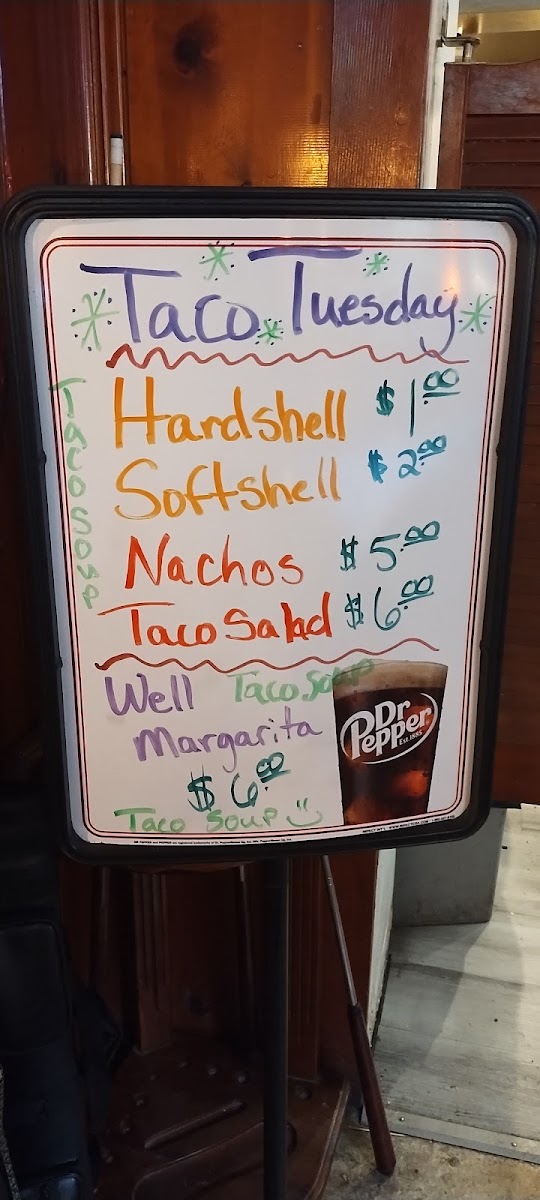 Taco Tuesday
Taco Soup
Hardshell $1.00
Softshell $2.00
Nachos $5.00
Taco Salad $6.00
Well Taco Soup
Margarita
$6.00
Taco Soup
Dr Pepper
Est. 1885